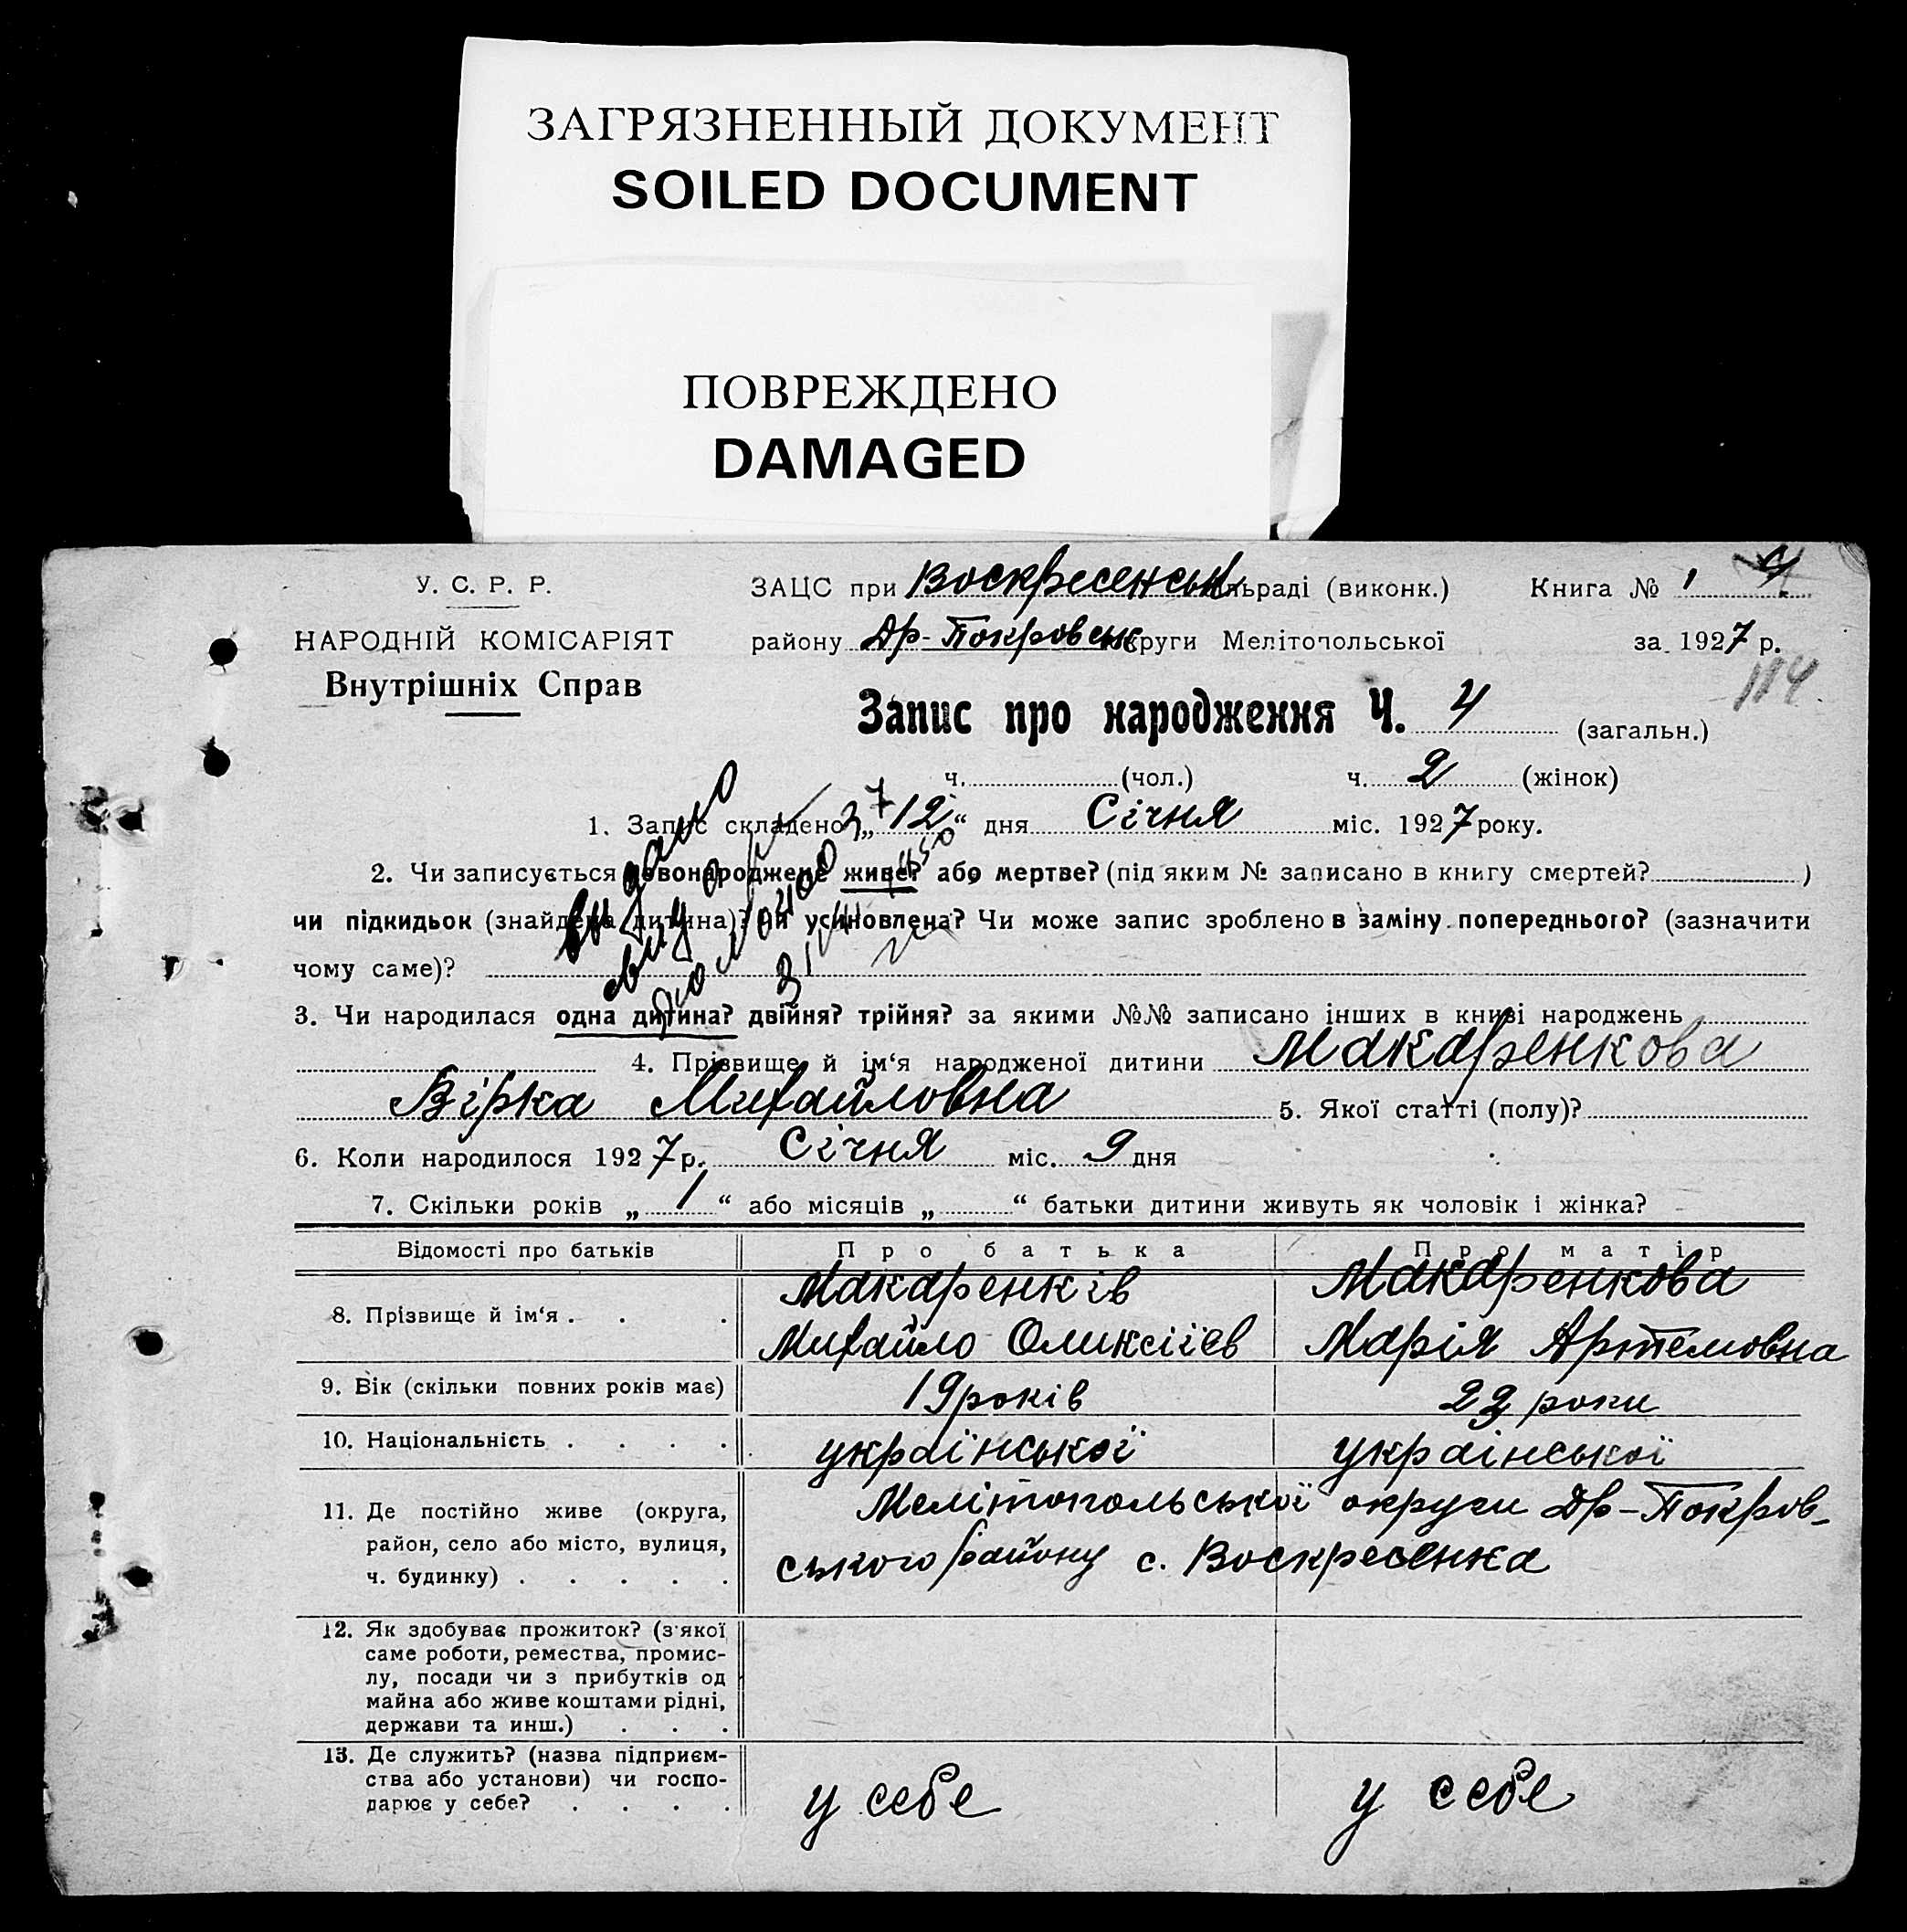 ЗАГРЯЗНЕННЫЙ ДОКУМЕНТ
SOILED DOCUMENT
ПОВРЕЖДЕНО
DAMAGED
У. С. Р. Р.
НАРОДНІЙ КОМІСАРІЯТ
Внутрішніх Справ
ЗАЦС при Воскресенськ льраді (виконк.) Книга № 1
району Др-Покровськ округи Мелітопольської за 1927 р.
114
Запис про народження Ч. 4 (загальн.)
ч. (чол.) ч. 2 (жінок)
1. Запис складено „12“ дня Січня міс. 1927 року.
2. Чи записується новонароджене живе? або мертве? (під яким № записано в книгу смертей? )
чи підкидьок (знайдена дитина)? чи усиновлена? Чи може запис зроблено в заміну попереднього? (зазначити
чому саме)?
видано
3. Чи народилася одна дитина? двійня? трійня? за якими №№ записано інших в книзі народжень
4. Прізвище й ім‘я народженої дитини Макаренкова
Вірка Михайловна 5. Якої статті (полу)?
6. Коли народилося 1927 р. Січня міс. 9 дня
7. Скільки років „ 1 “ або місяців „ “ батьки дитини живуть як чоловік і жінка?
Відомості про батьків Про батька Про матір
8. Прізвище й ім‘я . . . Макаренків Макаренкова
Михайло Оликсіїев Марія Артемовна
9. Вік (скільки повних років має) 19 років 22 роки
10. Національність . . . . української української
11. Де постійно живе (округа, район, село або місто, вулиця, ч. будинку) . . . . . Мелітопольської округи Др-Покров-
ського району с. Воскресенка
12. Як здобуває прожиток? (з'якої
саме роботи, ремества, промис-
лу, посади чи з прибутків од
майна або живе коштами рідні,
держави та инш.) . . .
13. Де служить? (назва підприєм-
ства або установи) чи госпо-
дарює у себе? . . . . у себе у себе